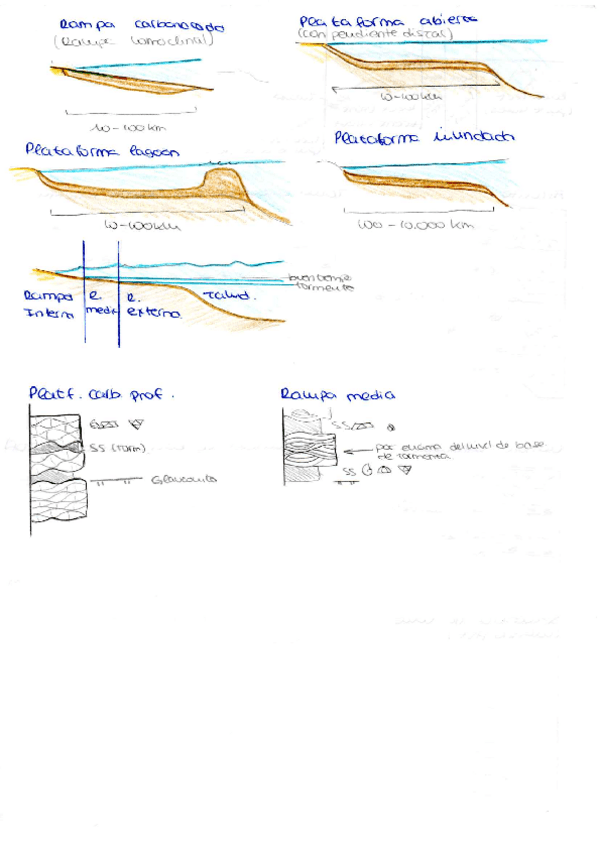 Rampa carbonatada
(Rampa homoclinal)
10-100 km
Plataforma abierta
(con pendiente distal)
10-100 km
Plataforma lagoon
10-100 km
Plataforma inundada
100 - 10.000 km
buen tiempo
tormenta
Rampa Interna
R. media
R. externa
Talud.
Platf. carb. prof.
SS (torm)
Glauconita
Rampa media
SS
por encima del nivel de base
de tormenta
SS